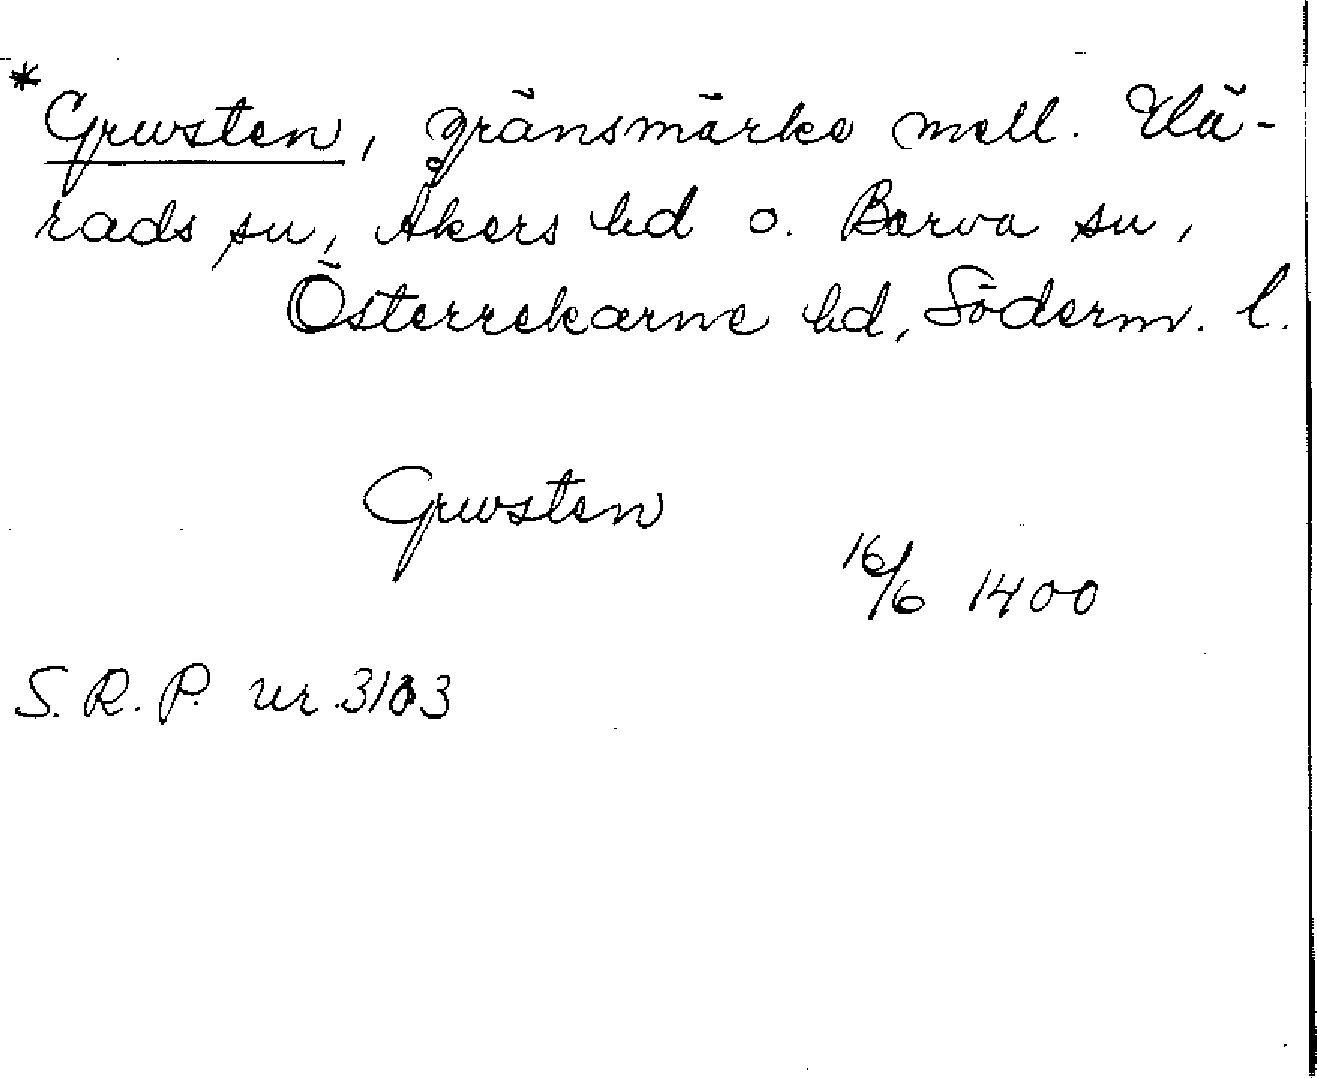 *Grwsten, gränsmärke mell. Hä-
rads sn, Åkers hd o. Barva sn,
Österrekarne hd, Söderm. l.
Grwsten
16/6 1400
S. R. P. nr 3103